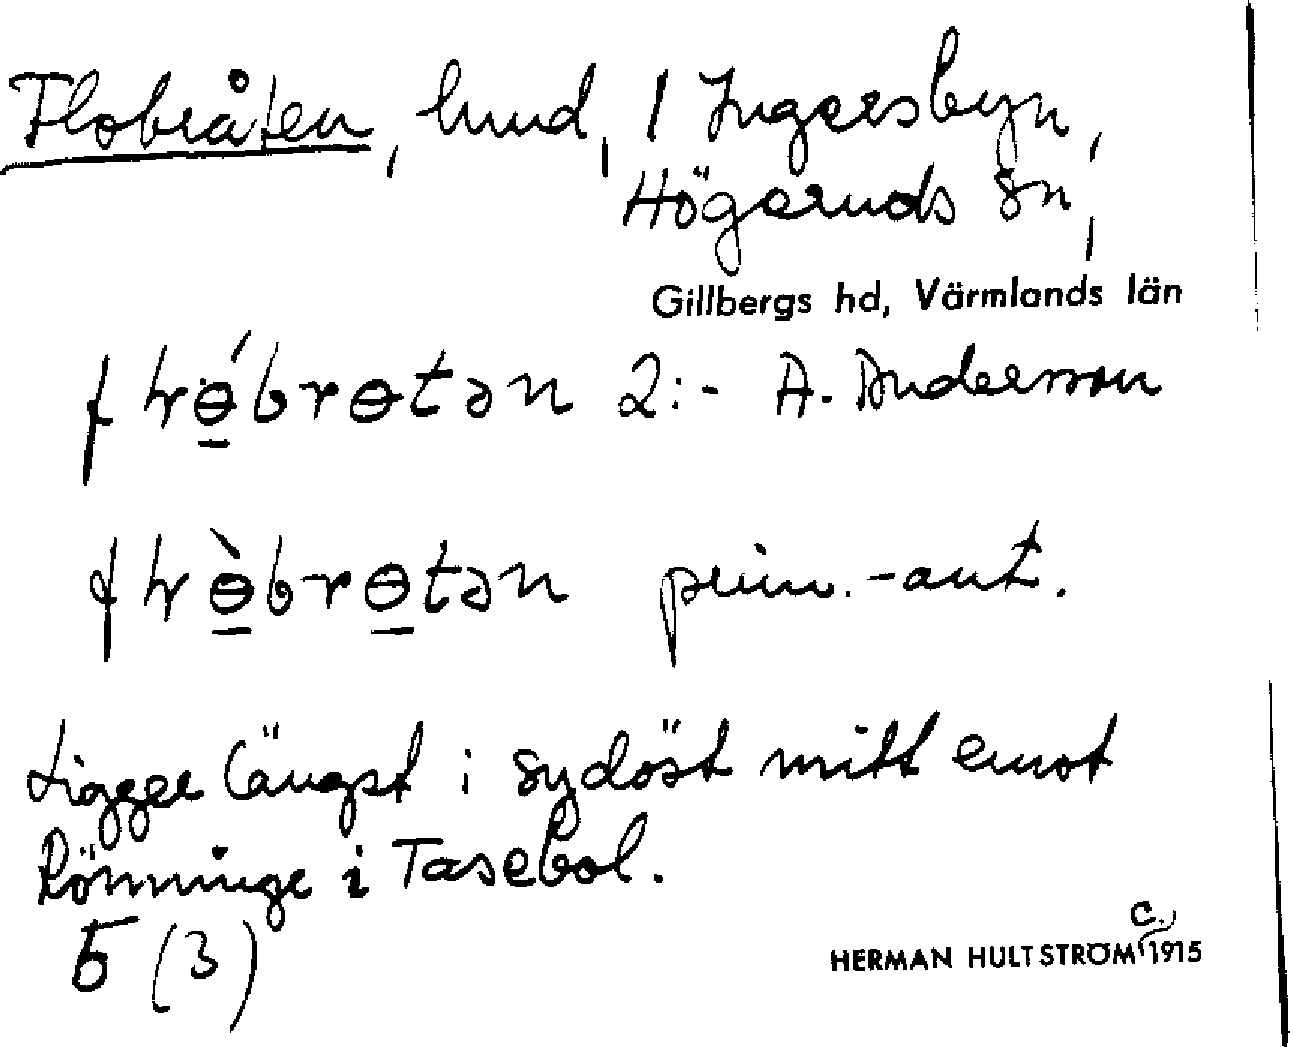 Flobråten, lund, / Ingersbyn,
Högeruds sn,
Gillbergs hd, Värmlands län
2:- A. Andersson
prim.-ant.
Ligger längst i sydöst mitt emot
Rönninge i Tasebol.
5 (3)
HERMAN HULTSTRÖM c. 1915